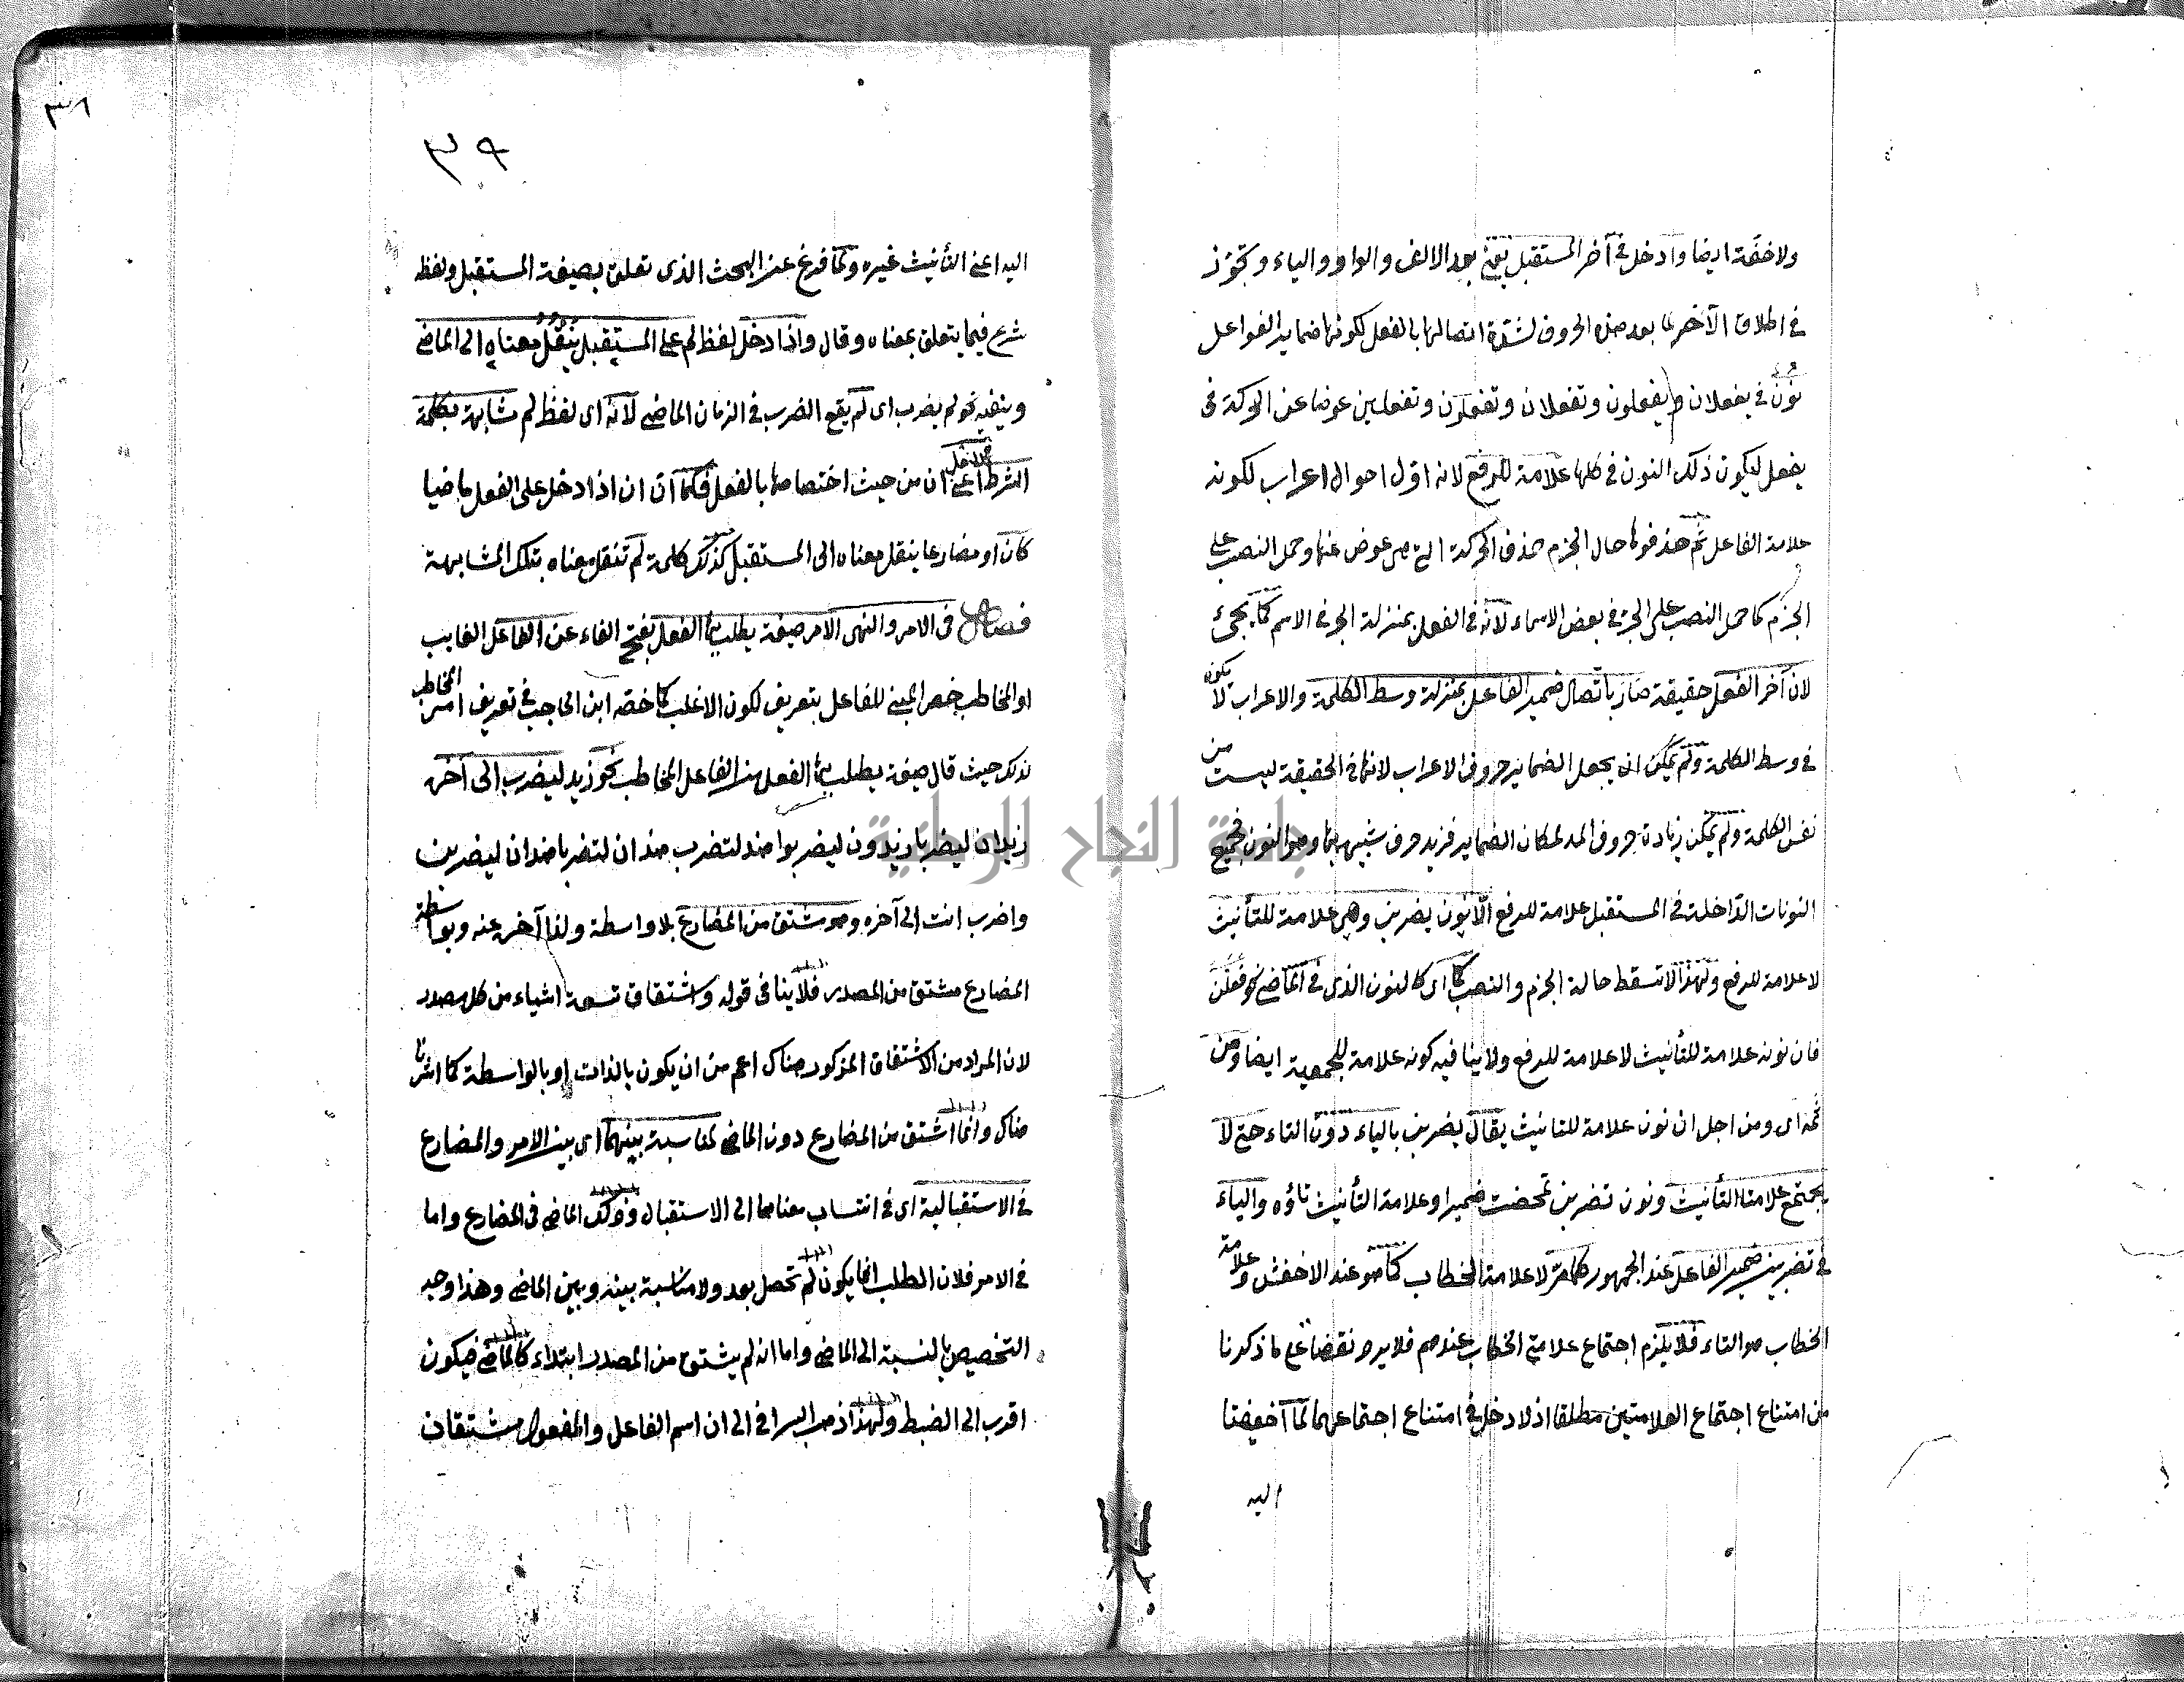 ولا خفة ايضا وادخل في آخر المستقبل يعني بعد الالف والواو والياء وتجوز
في اطلاق الآخر لما بعد هذه الحروف لشدة اتصالها بالفعل لكونها ضماير الفواعل
نون في يفعلان ويفعلون وتفعلان وتفعلون وتفعلين عوضا عن الحركة في
يفعل ليكون ذلك النون في كلها علامة للرفع لانه اول احوال اعراب لكونه
علامة الفاعل ثم حذفوها حال الجزم حذف الحركة التي هي عوض عنها وحمل النصب على
الجزم كما حمل النصب على الجر في بعض الاسماء لانه في الفعل بمنزلة الجر في الاسم كما يجئ
لان آخر الفعل حقيقة صار باتصال ضمير الفاعل بمنزلة وسط الكلمة والاعراب لا يكون
في وسط الكلمة ولم يمكن ان يجعل الضماير حروف الاعراب لانها في الحقيقة ليست من
نفس الكلمة ولم يمكن زيادة حروف المد لمكان الضماير فزيد حرف شبيه بها وهو النون فجميع
النونات الداخلة في المستقبل علامة للرفع الا نون يضربن وهي علامة للتأنيث
لا علامة للرفع ولهذا لا تسقط حالة الجزم والنصب كما اى كالنون الذى في الماضي نحو فعلن
فان نونه علامة للتأنيث لا علامة للرفع ولا ينافيه كونه علامة للجمعية ايضا ومن
ثمه اى ومن اجل ان نون علامة للتانيث يقال يضربن بالياء دون التاء حتى لا
يجتمع علامتا التأنيث ونون تضربن تمحضت ضميرا وعلامة التأنيث تاؤه والياء
في تضربين ضمير الفاعل عند الجمهور كما مر لا علامة الخطاب كما هو عند الاخفش وعلامة
الخطاب هو التاء فلا يلزم اجتماع علامتي الخطاب عندهم فلا يرد نقضا على ما ذكرنا
من امتناع اجتماع العلامتين مطلقا اذ لا دخل في امتناع اجتماعهما لما اضيفتا
اليه
٣٨
٣٩
اليه اعني التأنيث غيره ولما فرغ عن البحث الذى تعلق بصيغة المستقبل ولفظه
شرع فيما يتعلق بمعناه وقال واذا دخل لفظ لم على المستقبل ينقل معناه الى الماضي
وينفيه نحو لم يضرب اى لم يقع الضرب في الزمان الماضي لانه اى لفظ لم مشابهة بكلمة
الشرط اعني ان من حيث اختصاصها بالفعل فكما ان ان اذا دخل على الفعل ماضيا
كان او مضارعا ينقل معناه الى المستقبل كذلك كلمة لم تنقل معناه بتلك المشابهة
فصل في الامر والنهى الامر صيغة يطلب بها الفعل بفتح الفاء عن الفاعل الغايب
او المخاطب خص المبني للفاعل بتعريف لكون الاغلب كما خصه ابن الحاجب في تعريف امر المخاطب
لذلك حيث قال صيغة يطلب بها الفعل من الفاعل المخاطب نحو زيد ليضرب الى آخره
زيدان ليضربا زيدون ليضربوا هند لتضرب هندان لتضربا هندات ليضربن
واضرب انت الى آخره وهو مشتق من المضارع بلا واسطة ولذا آخره عنه وبواسطة
المضارع مشتق من المصدر فلا ينافى قوله واشتقاق تسعة اشياء من كل مصدر
لان المراد من الاشتقاق المذكور هناك اعم من ان يكون بالذات او بالواسطة كما اشرنا
هناك وانما اشتق من المضارع دون الماضي لمناسبة بينهما اى بين الامر والمضارع
في الاستقبالية اى في انتساب معناهما الى الاستقبال وذلك في المضارع واما
في الامر فلان الطلب انما يكون لم تحصل بعد ولا مناسبة بينه وبين الماضي وهذا وجه
التخصيص بالنسبة الى الماضي واما انه لم يشتق من المصدر ابتداء كالماضي فيكون
اقرب الى الضبط ولهذا ذهب السيرافي الى ان اسم الفاعل والمفعول مشتقان
جامعة النجاح الوطنية